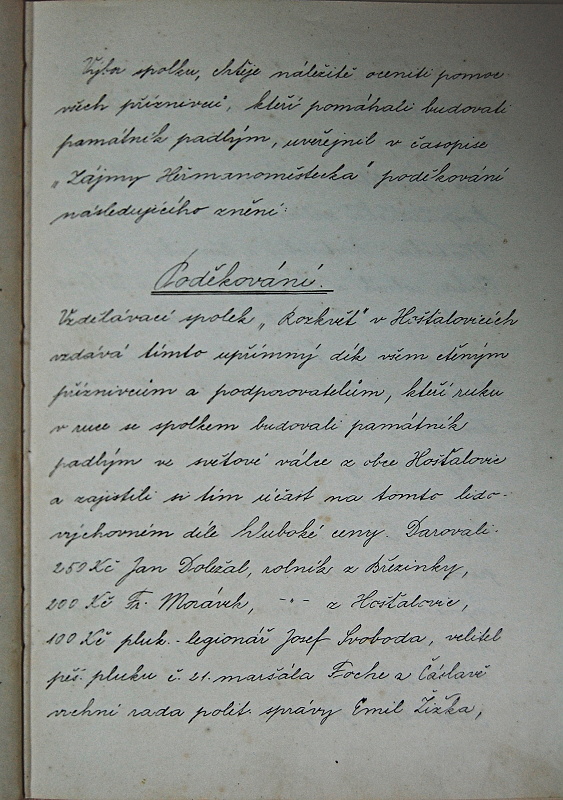 Výbor spolku, chtěje náležitě oceniti pomoc
všech příznivců, kteří pomáhali budovati
památník padlým, uveřejnil v časopise
„Zájmy Heřmanoměstecka" poděkování
následujícího znění:
Poděkování.
Vzdělávací spolek „Rozkvět" v Hošťalovicích
vzdává tímto upřímný dík všem ctěným
příznivcům a podporovatelům, kteří ruku
v ruce se spolkem budovali památník
padlým ve světové válce z obce Hošťalovic
a zajistili si tím účast na tomto lido-
výchovném díle hluboké ceny. Darovali:
250 Kč Jan Doležal, rolník z Březinky,
200 Kč Fr. Morávek, -"- z Hošťalovic,
100 Kč pluk. legionář Josef Svoboda, velitel
pěš. pluku č. 21. maršála Foche z Čáslavě
vrchní rada polit. správy Emil Žižka,